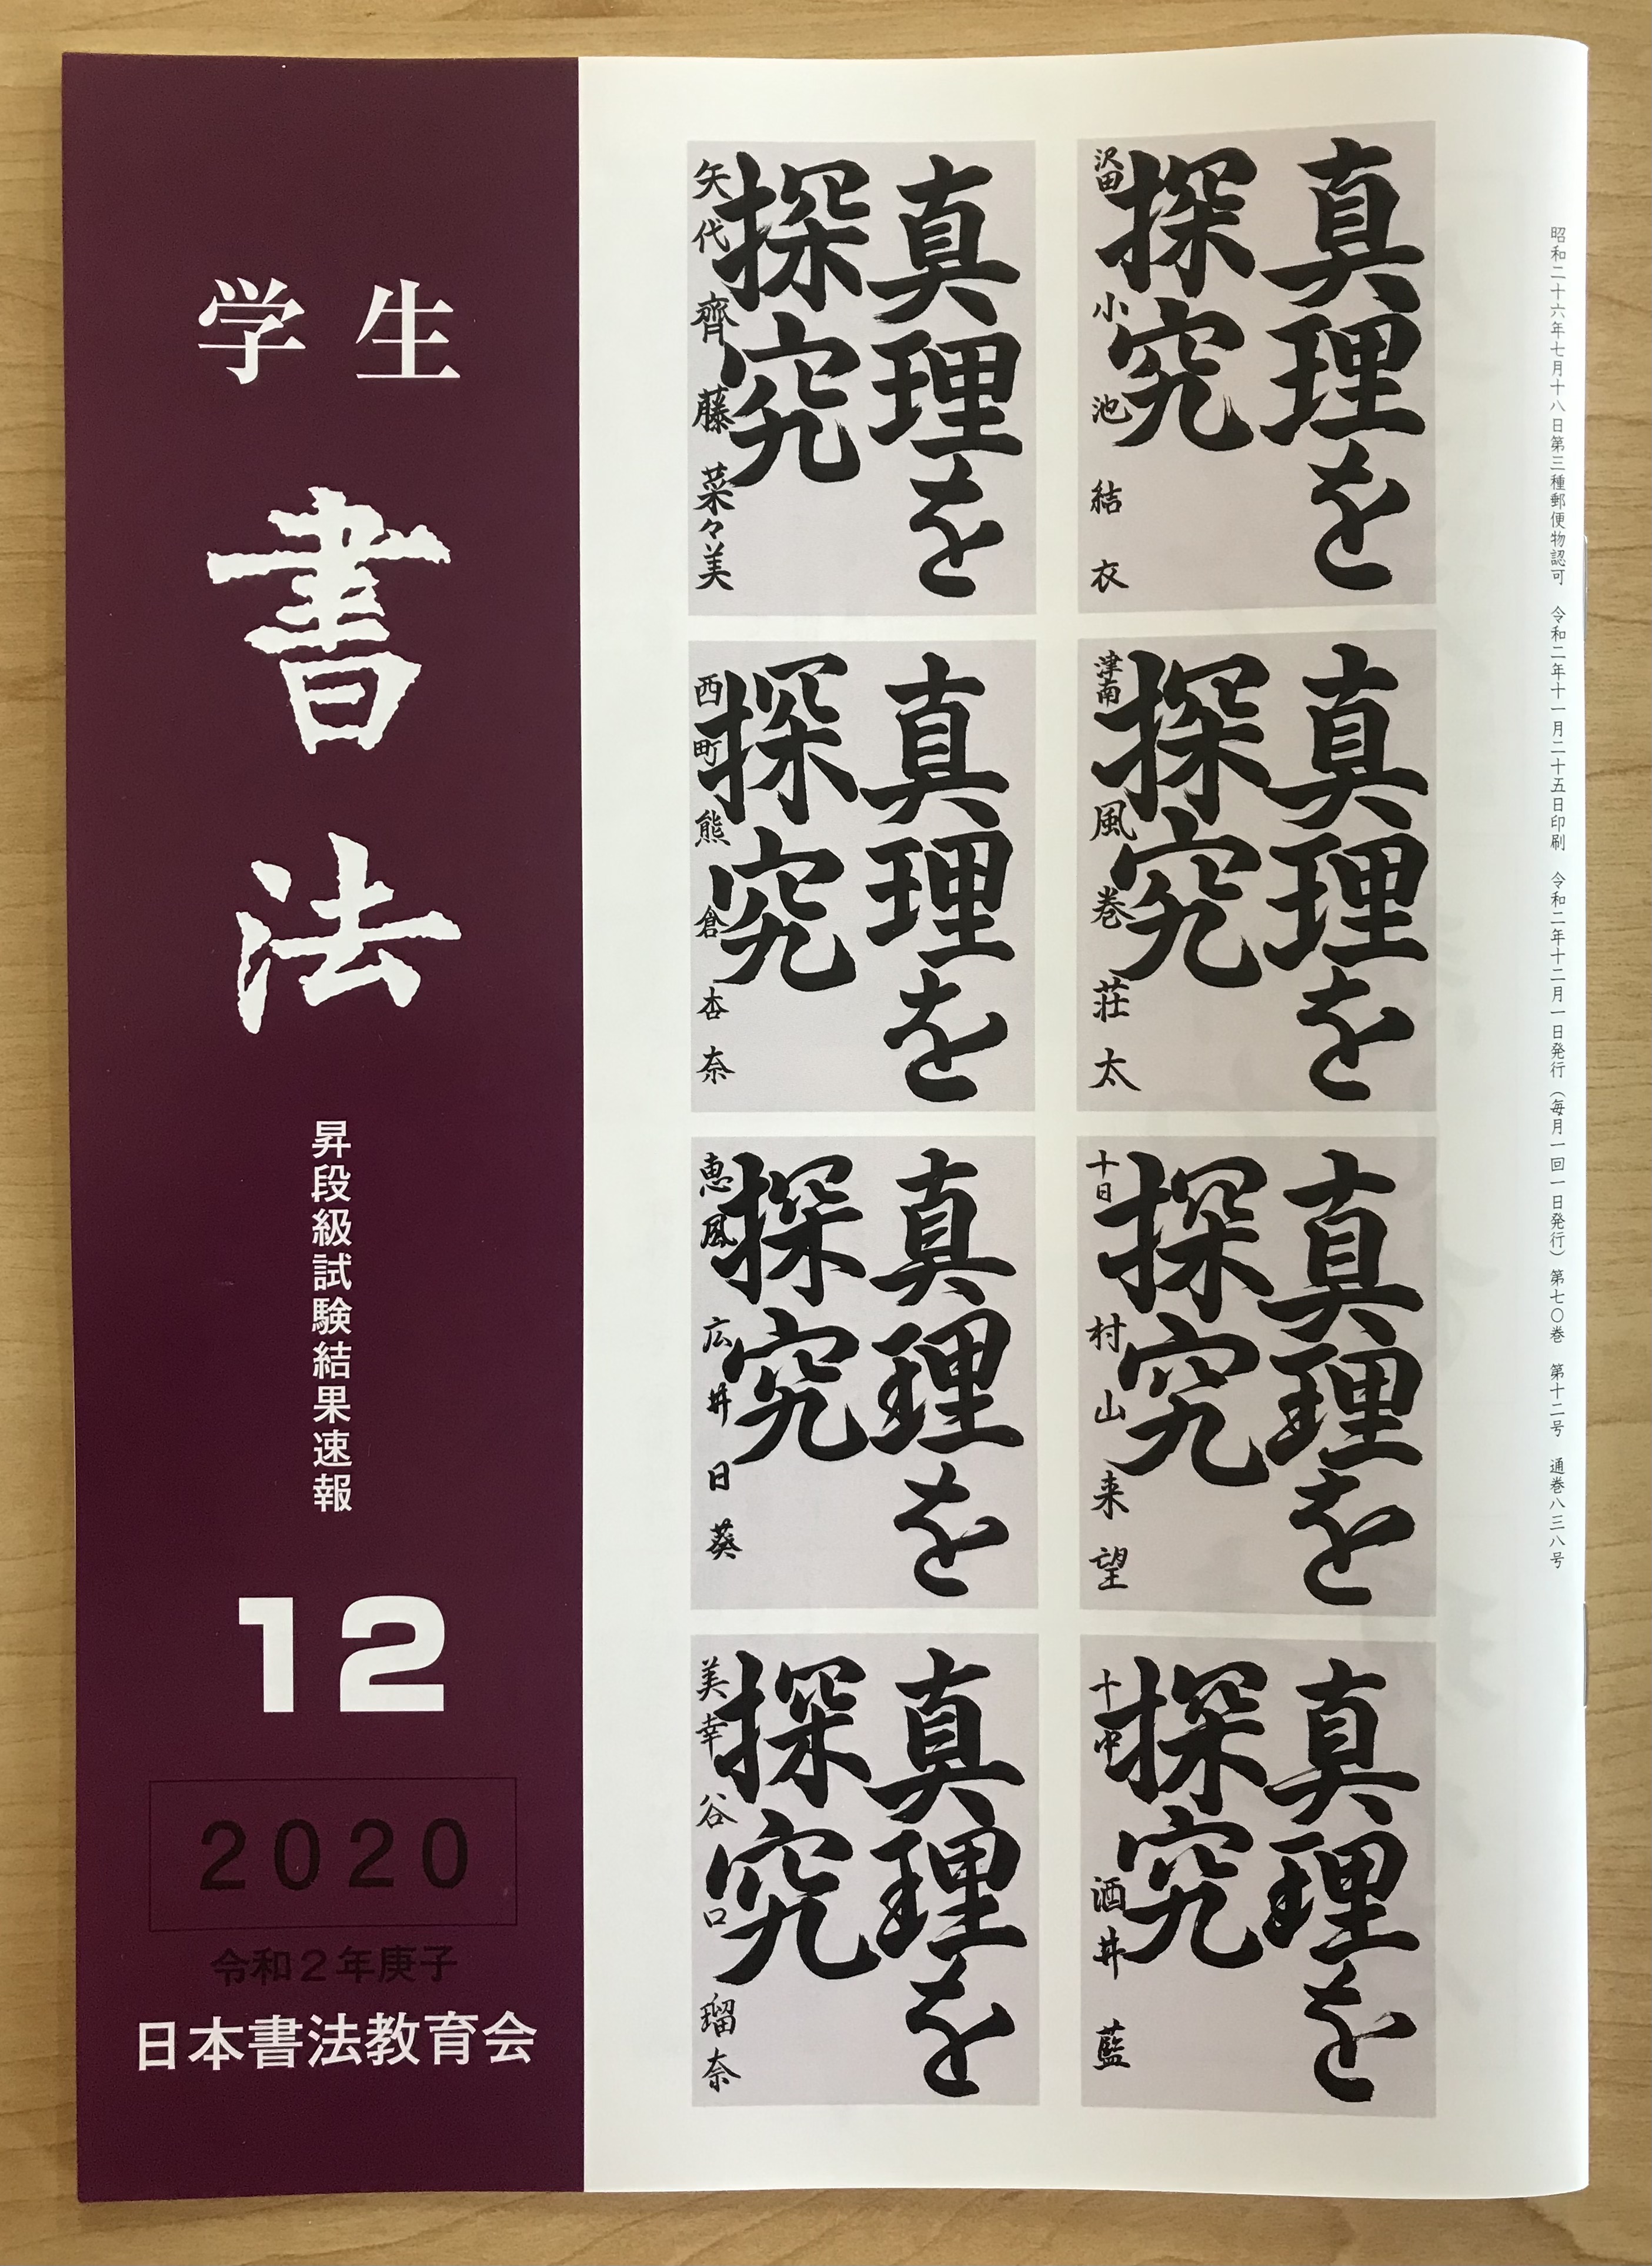 学生
書法
昇段級試験結果速報
12
2020
令和2年庚子
日本書法教育会
真理を
探究
沢田 小池結衣
真理を
探究
矢代 齊藤菜々美
真理を
探究
津南 風巻荘太
真理を
探究
西町 熊倉杏奈
真理を
探究
十日 村山来望
真理を
探究
恵風 広井日葵
真理を
探究
十中 酒井藍
真理を
探究
美幸 谷口瑠奈
昭和二十六年七月十八日第三種郵便物認可 令和二年十一月二十五日印刷 令和二年十二月一日発行(毎月一回一日発行)第七〇巻 第十二号 通巻八三八号